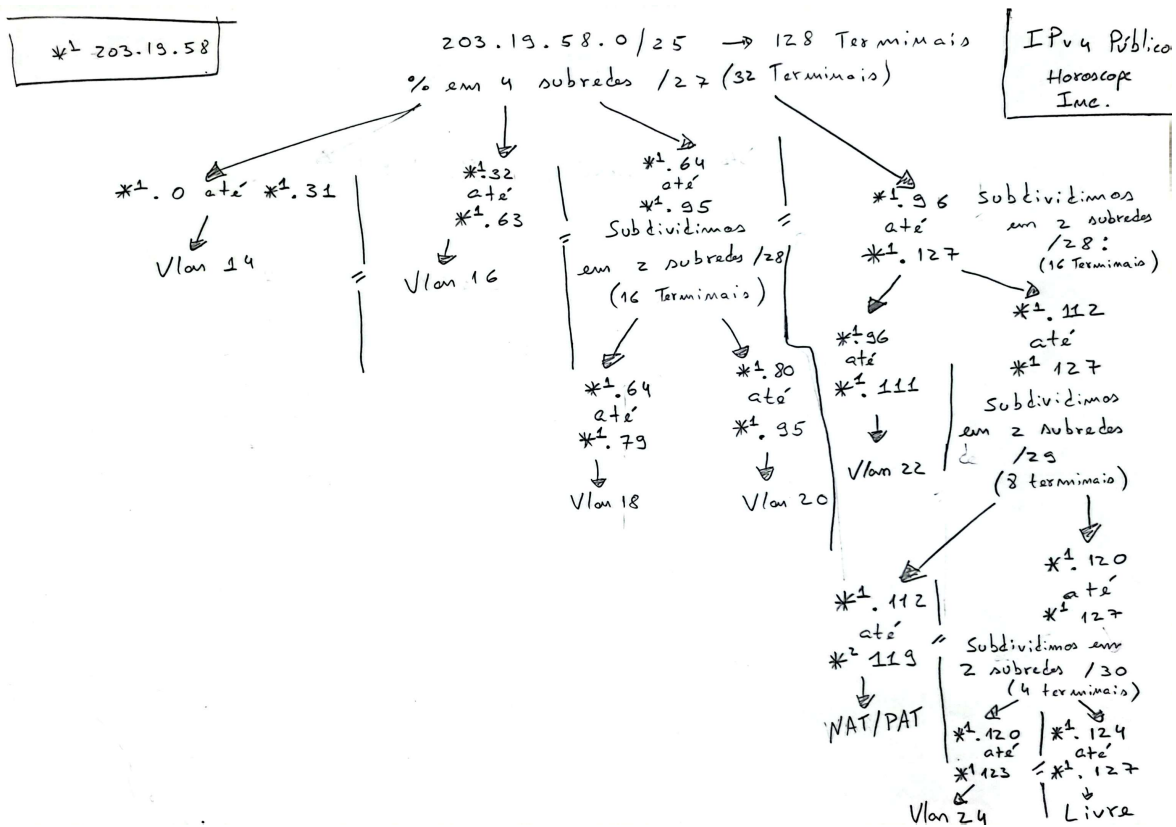 *¹ 203.19.58
203.19.58.0/25 → 128 Terminais
% em 4 subredes /27 (32 Terminais)
IPv4 Público
Horoscope
Inc.
*¹.0 até *¹.31
Vlan 14
*¹.32
até
*¹.63
Vlan 16
*¹.64
até
*¹.95
Subdividimos
em 2 subredes /28
(16 Terminais)
*¹.64
até
*¹.79
Vlan 18
*¹.80
até
*¹.95
Vlan 20
*¹.96
até
*¹.127
Subdividimos
em 2 subredes
/28:
(16 Terminais)
*¹.96
até
*¹.111
Vlan 22
*¹.112
até
*¹ 127
Subdividimos
em 2 subredes
/29
(8 terminais)
*¹.112
até
*² 119
NAT/PAT
*¹.120
até
*¹ 127
Subdividimos em
2 subredes /30
(4 terminais)
*¹.120
até
*¹ 123
Vlan 24
*¹.124
até
*¹.127
Livre